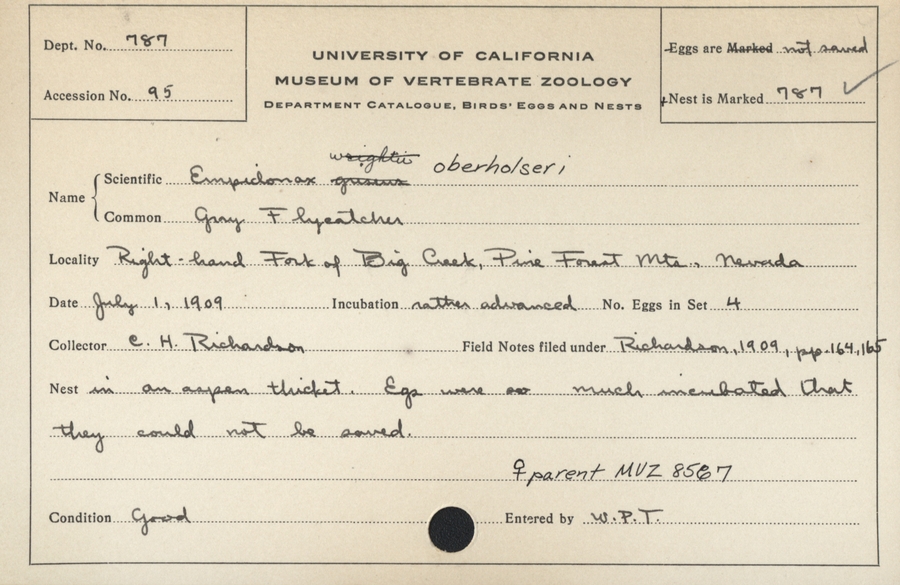 Dept. No. 787
UNIVERSITY OF CALIFORNIA
MUSEUM OF VERTEBRATE ZOOLOGY
DEPARTMENT CATALOGUE, BIRDS' EGGS AND NESTS
Eggs are Marked not saved
Accession No. 95
Nest is Marked 787 ✓
wrightii oberholseri
Name { Scientific Empidonax griseus
Common Gray Flycatcher
Locality Right-hand Fork of Big Creek, Pine Forest Mts., Nevada
Date July 1, 1909 Incubation rather advanced No. Eggs in Set 4
Collector C. H. Richardson Field Notes filed under Richardson, 1909, pp. 164, 165
Nest in an aspen thicket. Egs were so much incubated that
they could not be saved.
♀ parent MVZ 8567
Condition Good Entered by W.P.T.